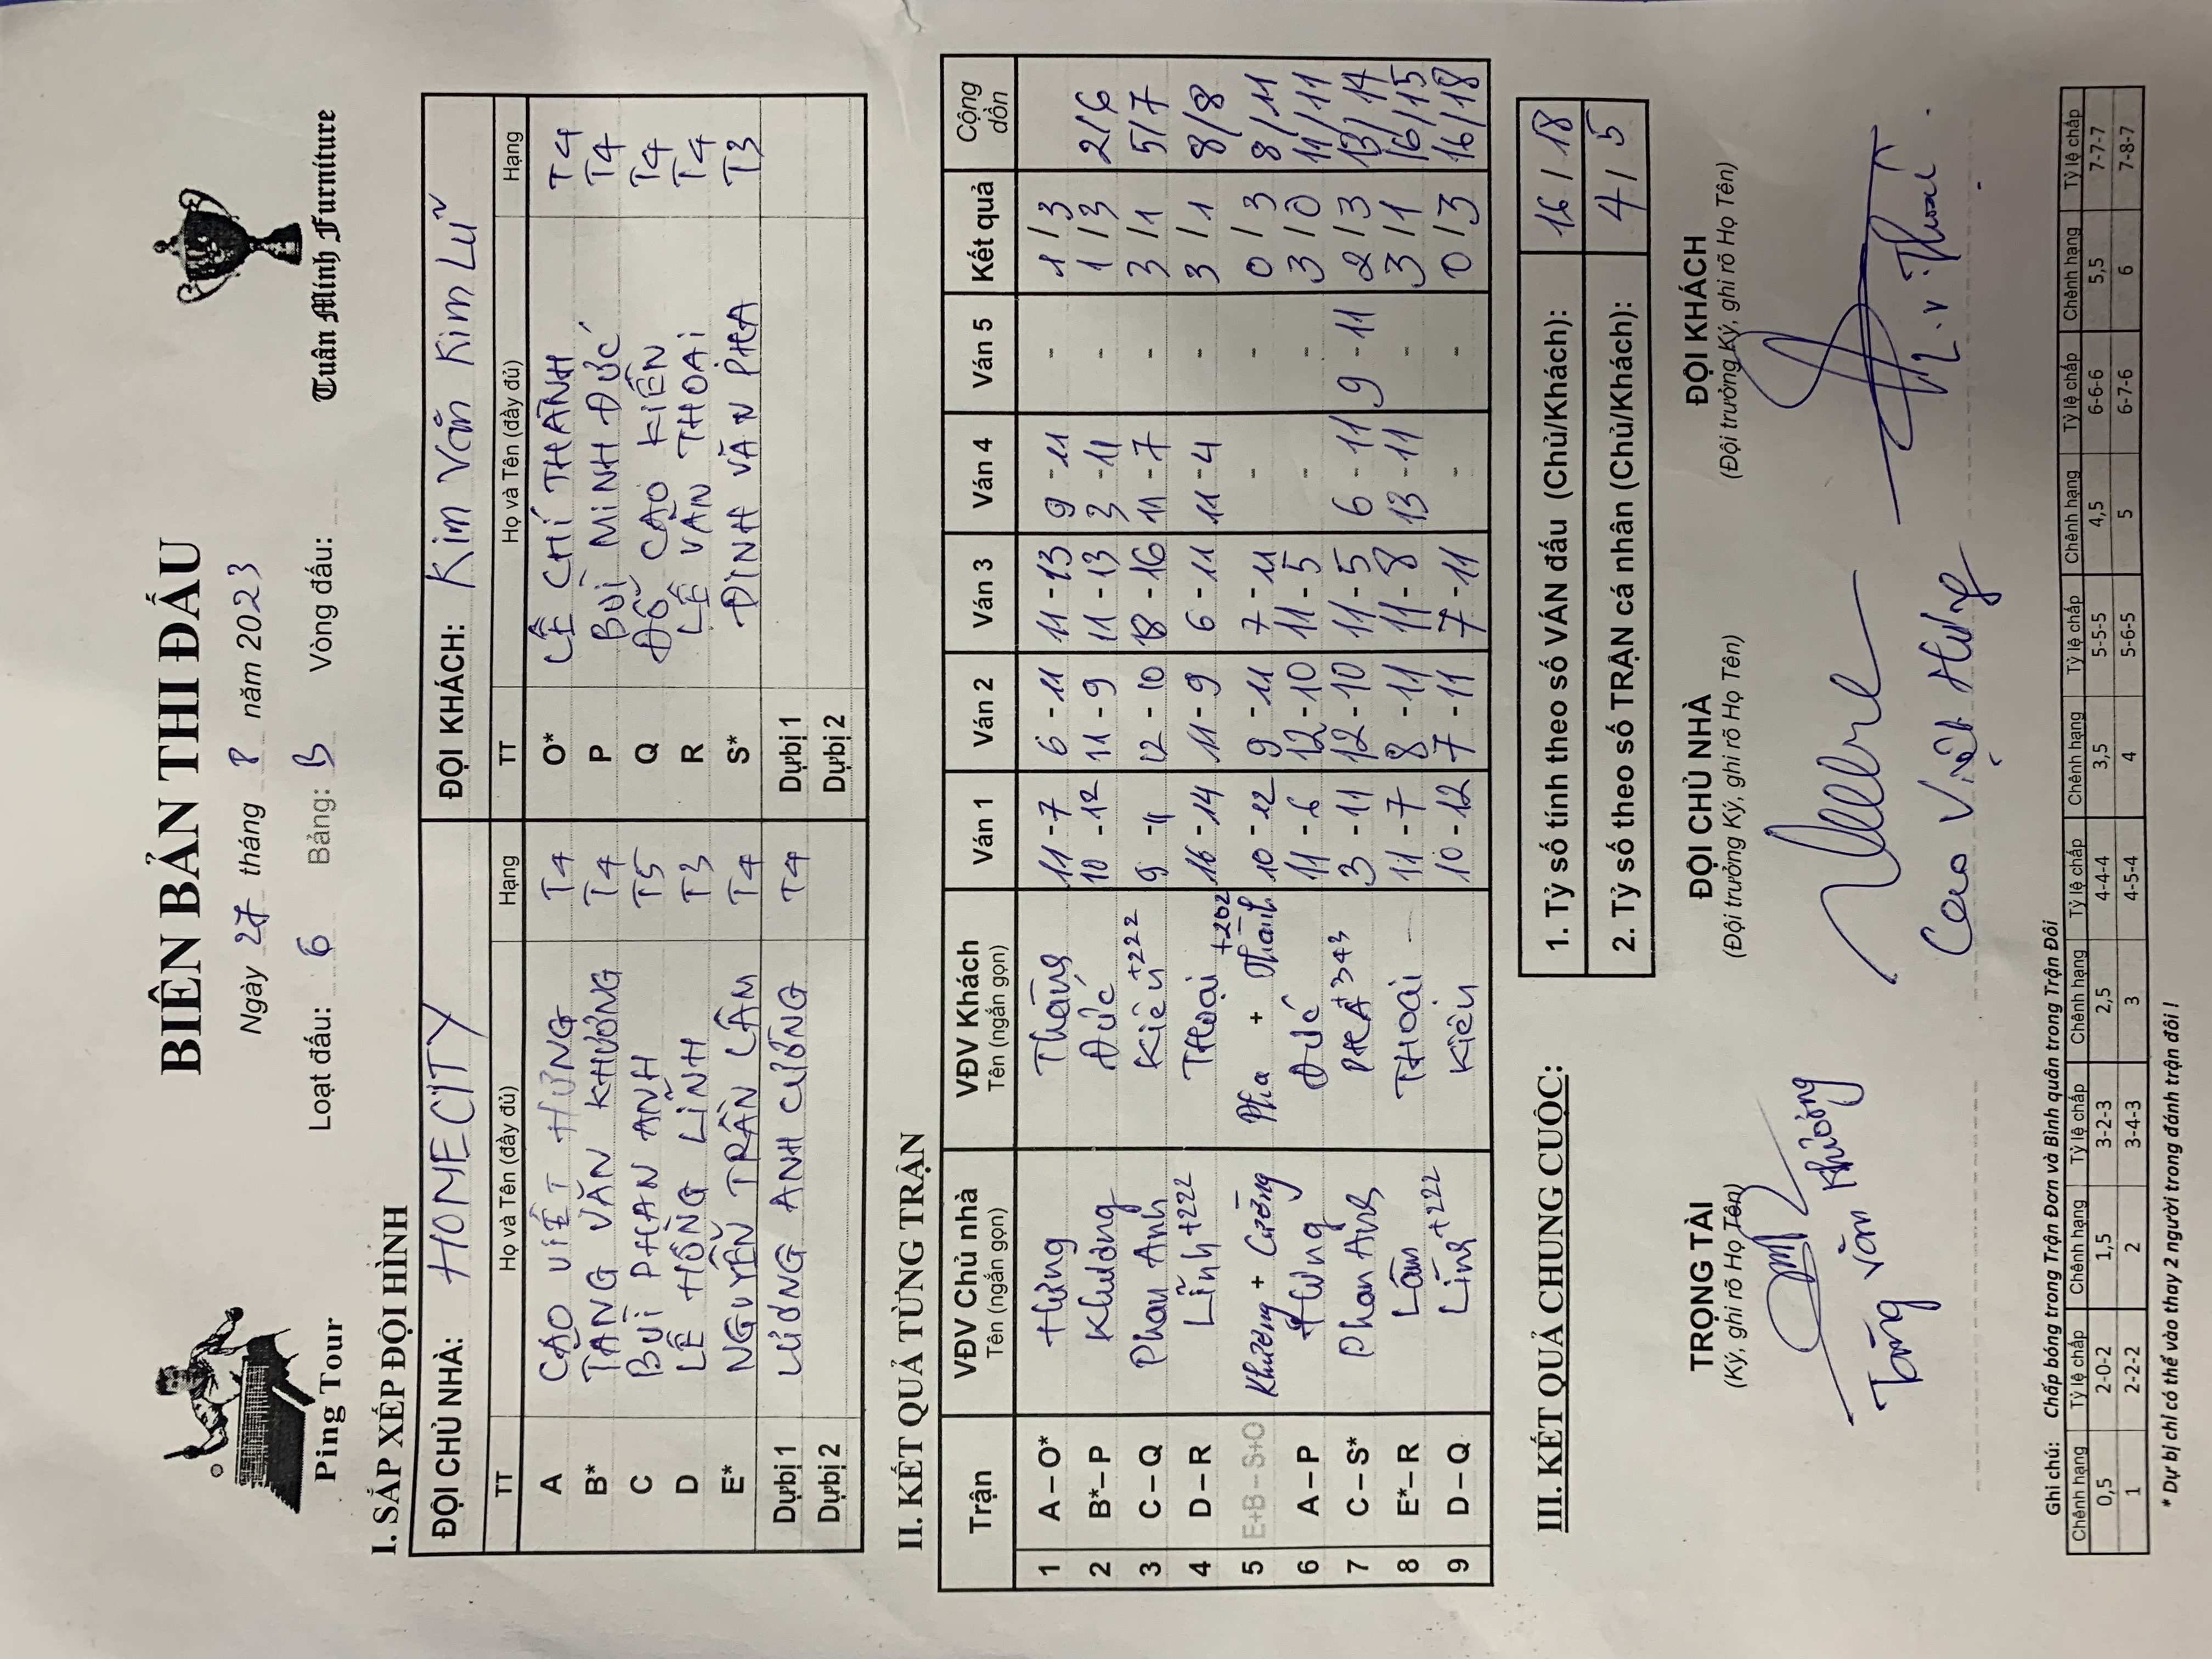 BIÊN BẢN THI ĐẤU
Ping Tour
Tuân Minh Furniture
Ngày 27 tháng 8 năm 2023
Loạt đấu: 6 Bảng: B Vòng đấu:
I. SẮP XẾP ĐỘI HÌNH
ĐỘI CHỦ NHÀ: HOMECITY ĐỘI KHÁCH: Kim Văn Kim Lũ
TT Họ và Tên (đầy đủ) Hạng TT Họ và Tên (đầy đủ) Hạng
A CAO VIẾT HƯNG T4 O* LÊ CHÍ THÀNH T4
B* TANG VĂN KHƯƠNG T4 P BÙI MINH ĐỨC T4
C BÙI PHAN ANH T5 Q ĐỖ CAO KIÊN T4
D LÊ HỒNG LĨNH T3 R LÊ VĂN THOAI T4
E* NGUYỄN TRẦN LÂM T4 S* ĐINH VĂN PHA T3
Dự bị 1 LƯƠNG ANH CƯỜNG T4 Dự bị 1
Dự bị 2 Dự bị 2
II. KẾT QUẢ TỪNG TRẬN
Trận VĐV Chủ nhà VĐV Khách Ván 1 Ván 2 Ván 3 Ván 4 Ván 5 Kết quả Cộng dồn
Tên (ngắn gọn) Tên (ngắn gọn)
1 A – O* Hưng Thành 11 - 7 6 - 11 11 - 13 9 - 11 - 1 / 3
2 B* – P Khương Đức 10 - 12 11 - 9 11 - 13 3 - 11 - 1 / 3 2/6
3 C – Q Phan Anh Kiên +222 9 - 11 12 - 10 18 - 16 11 - 7 - 3 / 1 5/7
4 D – R Lĩnh +222 Thoại +202 16 - 14 11 - 9 6 - 11 11 - 4 - 3 / 1 8/8
5 E+B – S+O Khương + Cường Pha + Thành 10 - 12 9 - 11 7 - 11 - - 0 / 3 8/11
6 A – P Hưng Đức 11 - 6 12 - 10 11 - 5 - - 3 / 0 11/11
7 C – S* Phan Anh PHA +343 3 - 11 12 - 10 11 - 5 6 - 11 9 - 11 2 / 3 13/14
8 E* – R Lâm THOAI 11 - 7 8 - 11 11 - 8 13 - 11 - 3 / 1 16/15
9 D – Q Lĩnh +222 Kiên 10 - 12 7 - 11 7 - 11 - - 0 / 3 16/18
III. KẾT QUẢ CHUNG CUỘC:
1. Tỷ số tính theo số VÁN đấu (Chủ/Khách): 16 / 18
2. Tỷ số theo số TRẬN cá nhân (Chủ/Khách): 4 / 5
TRỌNG TÀI ĐỘI CHỦ NHÀ ĐỘI KHÁCH
(Ký, ghi rõ Họ Tên) (Đội trưởng Ký, ghi rõ Họ Tên) (Đội trưởng Ký, ghi rõ Họ Tên)
Tăng Văn Khương Cao Việt Hưng L.V.Thoai
Ghi chú: Chấp bóng trong Trận Đơn và Bình quân trong Trận Đôi
Chênh hạng Tỷ lệ chấp Chênh hạng Tỷ lệ chấp Chênh hạng Tỷ lệ chấp Chênh hạng Tỷ lệ chấp Chênh hạng Tỷ lệ chấp Chênh hạng Tỷ lệ chấp
0,5 2-0-2 1,5 3-2-3 2,5 4-4-4 3,5 5-5-5 4,5 6-6-6 5,5 7-7-7
1 2-2-2 2 3-4-3 3 4-5-4 4 5-6-5 5 6-7-6 6 7-8-7
* Dự bị chỉ có thể vào thay 2 người trong đánh trận đôi !